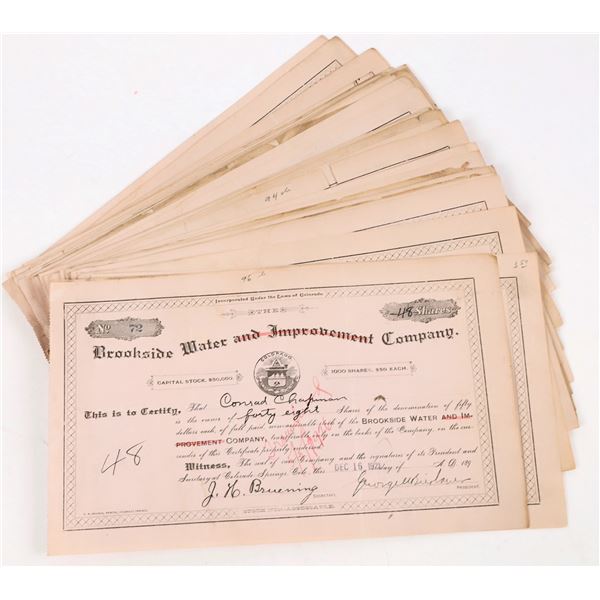 94 sh
96 sh
Incorporated Under the Laws of Colorado
THE
No 72
48 Shares
Brookside Water and Improvement Company.
COLORADO
CAPITAL STOCK, $50,000.
1000 SHARES, $50 EACH.
This is to Certify, That Conrad Chapman
is the owner of forty eight Shares of the denomination of fifty
dollars each, of full paid, unassessable stock of the BROOKSIDE WATER AND IM-
PROVEMENT COMPANY, transferable only on the books of the Company, on the sur-
render of this Certificate properly endorsed.
48
Witness, The seal of said Company and the signatures of its President and
Secretary at Colorado Springs, Colo., this DEC 16 day of A.D. 189
J. H. Bruening
SECRETARY.
PRESIDENT.
STOCK NON-ASSESSABLE.